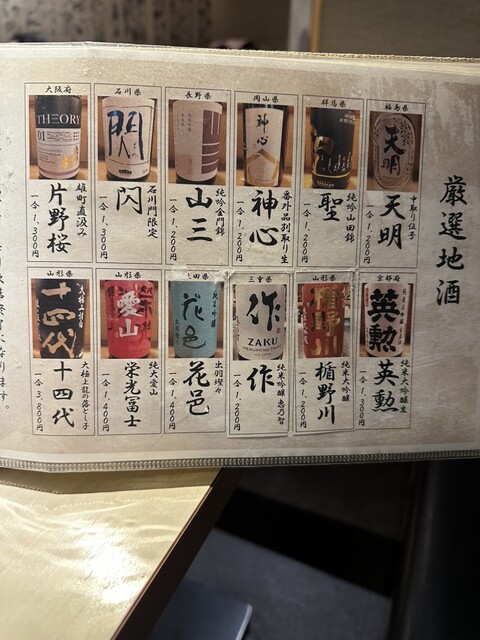 厳選地酒
福島県
天明
中取り伍子
天明
一合 1,200円
群馬県
聖
純吟山田錦
聖
一合 1,200円
岡山県
神心
番外品別取り生
神心
一合 1,200円
長野県
純吟金門錦
山三
一合 1,200円
石川県
閃
石川門限定
閃
一合 1,300円
大阪府
THEORY
01
雄町直汲み
片野桜
一合 1,300円
京都府
英勲
純米大吟醸生
英勲
一合 1,300円
山形県
楯野川
純米大吟醸
楯野川
一合 1,200円
三重県
作
ZAKU
純米吟醸 恵乃智
作
一合 1,200円
花邑
出羽燦々
花邑
一合 1,400円
山形県
愛山
純大愛山
栄光冨士
一合 1,400円
山形県
十四代
大極上龍の落とし子
十四代
一合 3,800円
なります。